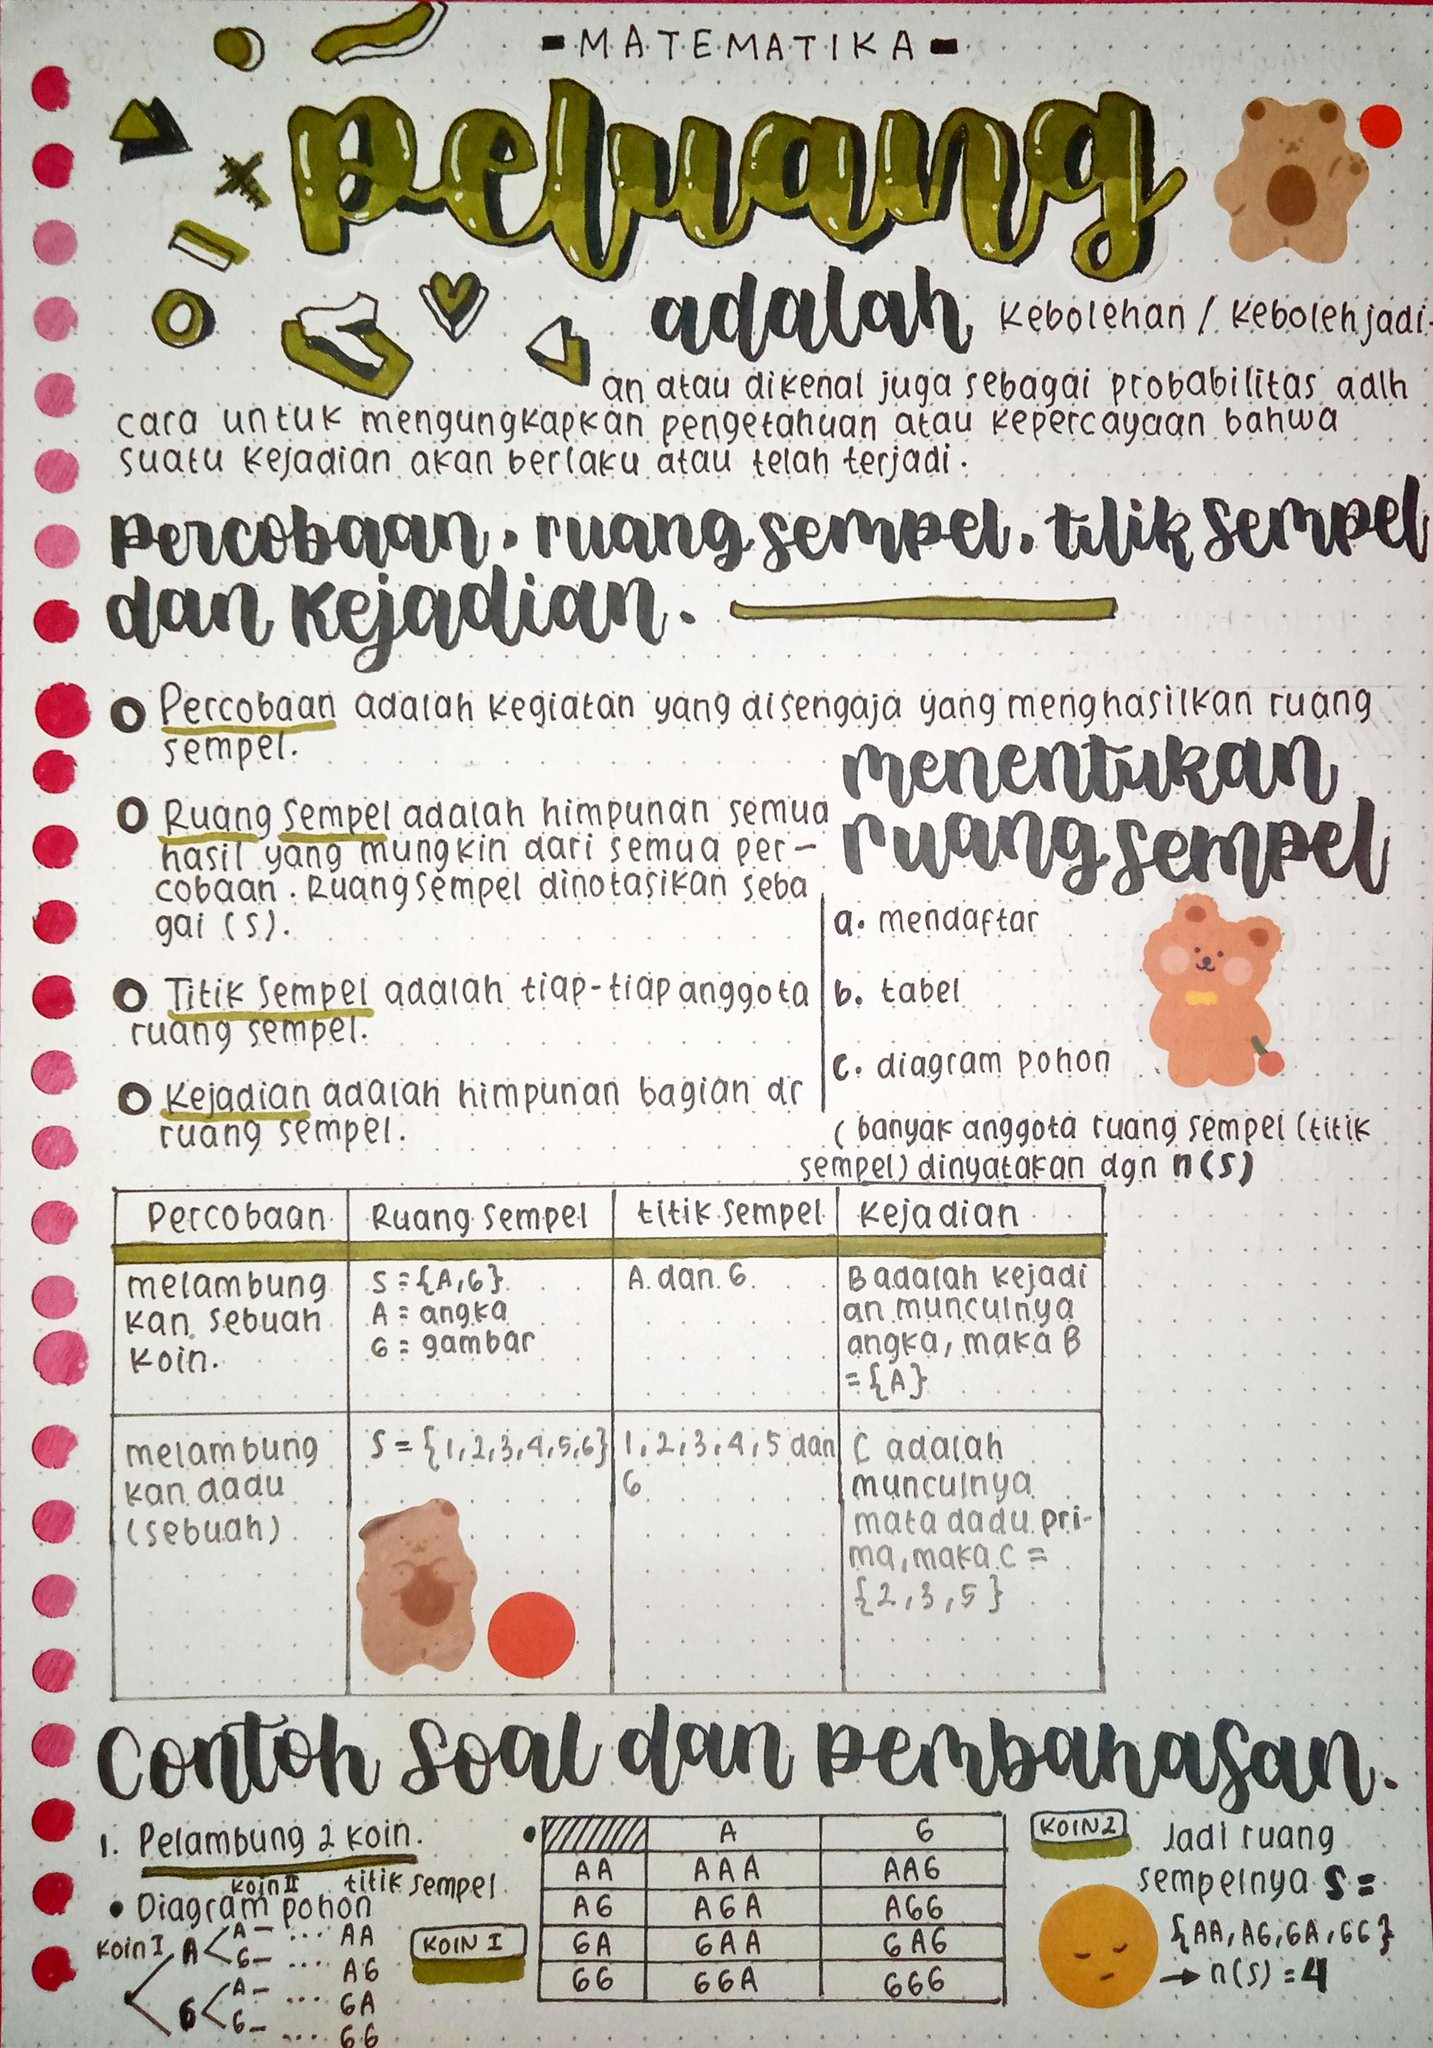 - M A T E M A T I K A -
peluang
adalah kebolehan / kebolehjadi-
an atau dikenal juga sebagai probabilitas adlh
cara untuk mengungkapkan pengetahuan atau kepercayaan bahwa
suatu kejadian akan berlaku atau telah terjadi.
percobaan, ruang sempel, titik sempel
dan kejadian.
Percobaan adalah kegiatan yang disengaja yang menghasilkan ruang
sempel.
Ruang Sempel adalah himpunan semua
hasil yang mungkin dari semua per-
cobaan. Ruang sempel dinotasikan seba
gai (s).
Titik Sempel adalah tiap-tiap anggota
ruang sempel.
Kejadian adalah himpunan bagian dr
ruang sempel.
menentukan
ruang sempel
a. mendaftar
b. tabel
c. diagram pohon
( banyak anggota ruang sempel (titik
sempel) dinyatakan dgn n(s)
Percobaan Ruang Sempel titik sempel Kejadian
melambung
kan sebuah
koin.
S = {A,G}
A = angka
G = gambar
A dan G
B adalah kejadi
an munculnya
angka, maka B
= {A}
melambung
kan dadu
(sebuah)
S = {1,2,3,4,5,6}
1, 2, 3, 4, 5 dan
6
C adalah
munculnya
mata dadu pri-
ma, maka C =
{2,3,5}
Contoh soal dan pembahasan.
1. Pelambung 2 koin.
koin II titik sempel
• Diagram pohon
koin I A A - ... AA
G - ... AG
G A - ... GA
G - ... GG
KOIN I
A G
AA AAA AAG
AG AGA AGG
GA GAA GAG
GG GGA GGG
KOIN 2
Jadi ruang
sempelnya S =
{AA, AG, GA, GG}
→ n(s) = 4